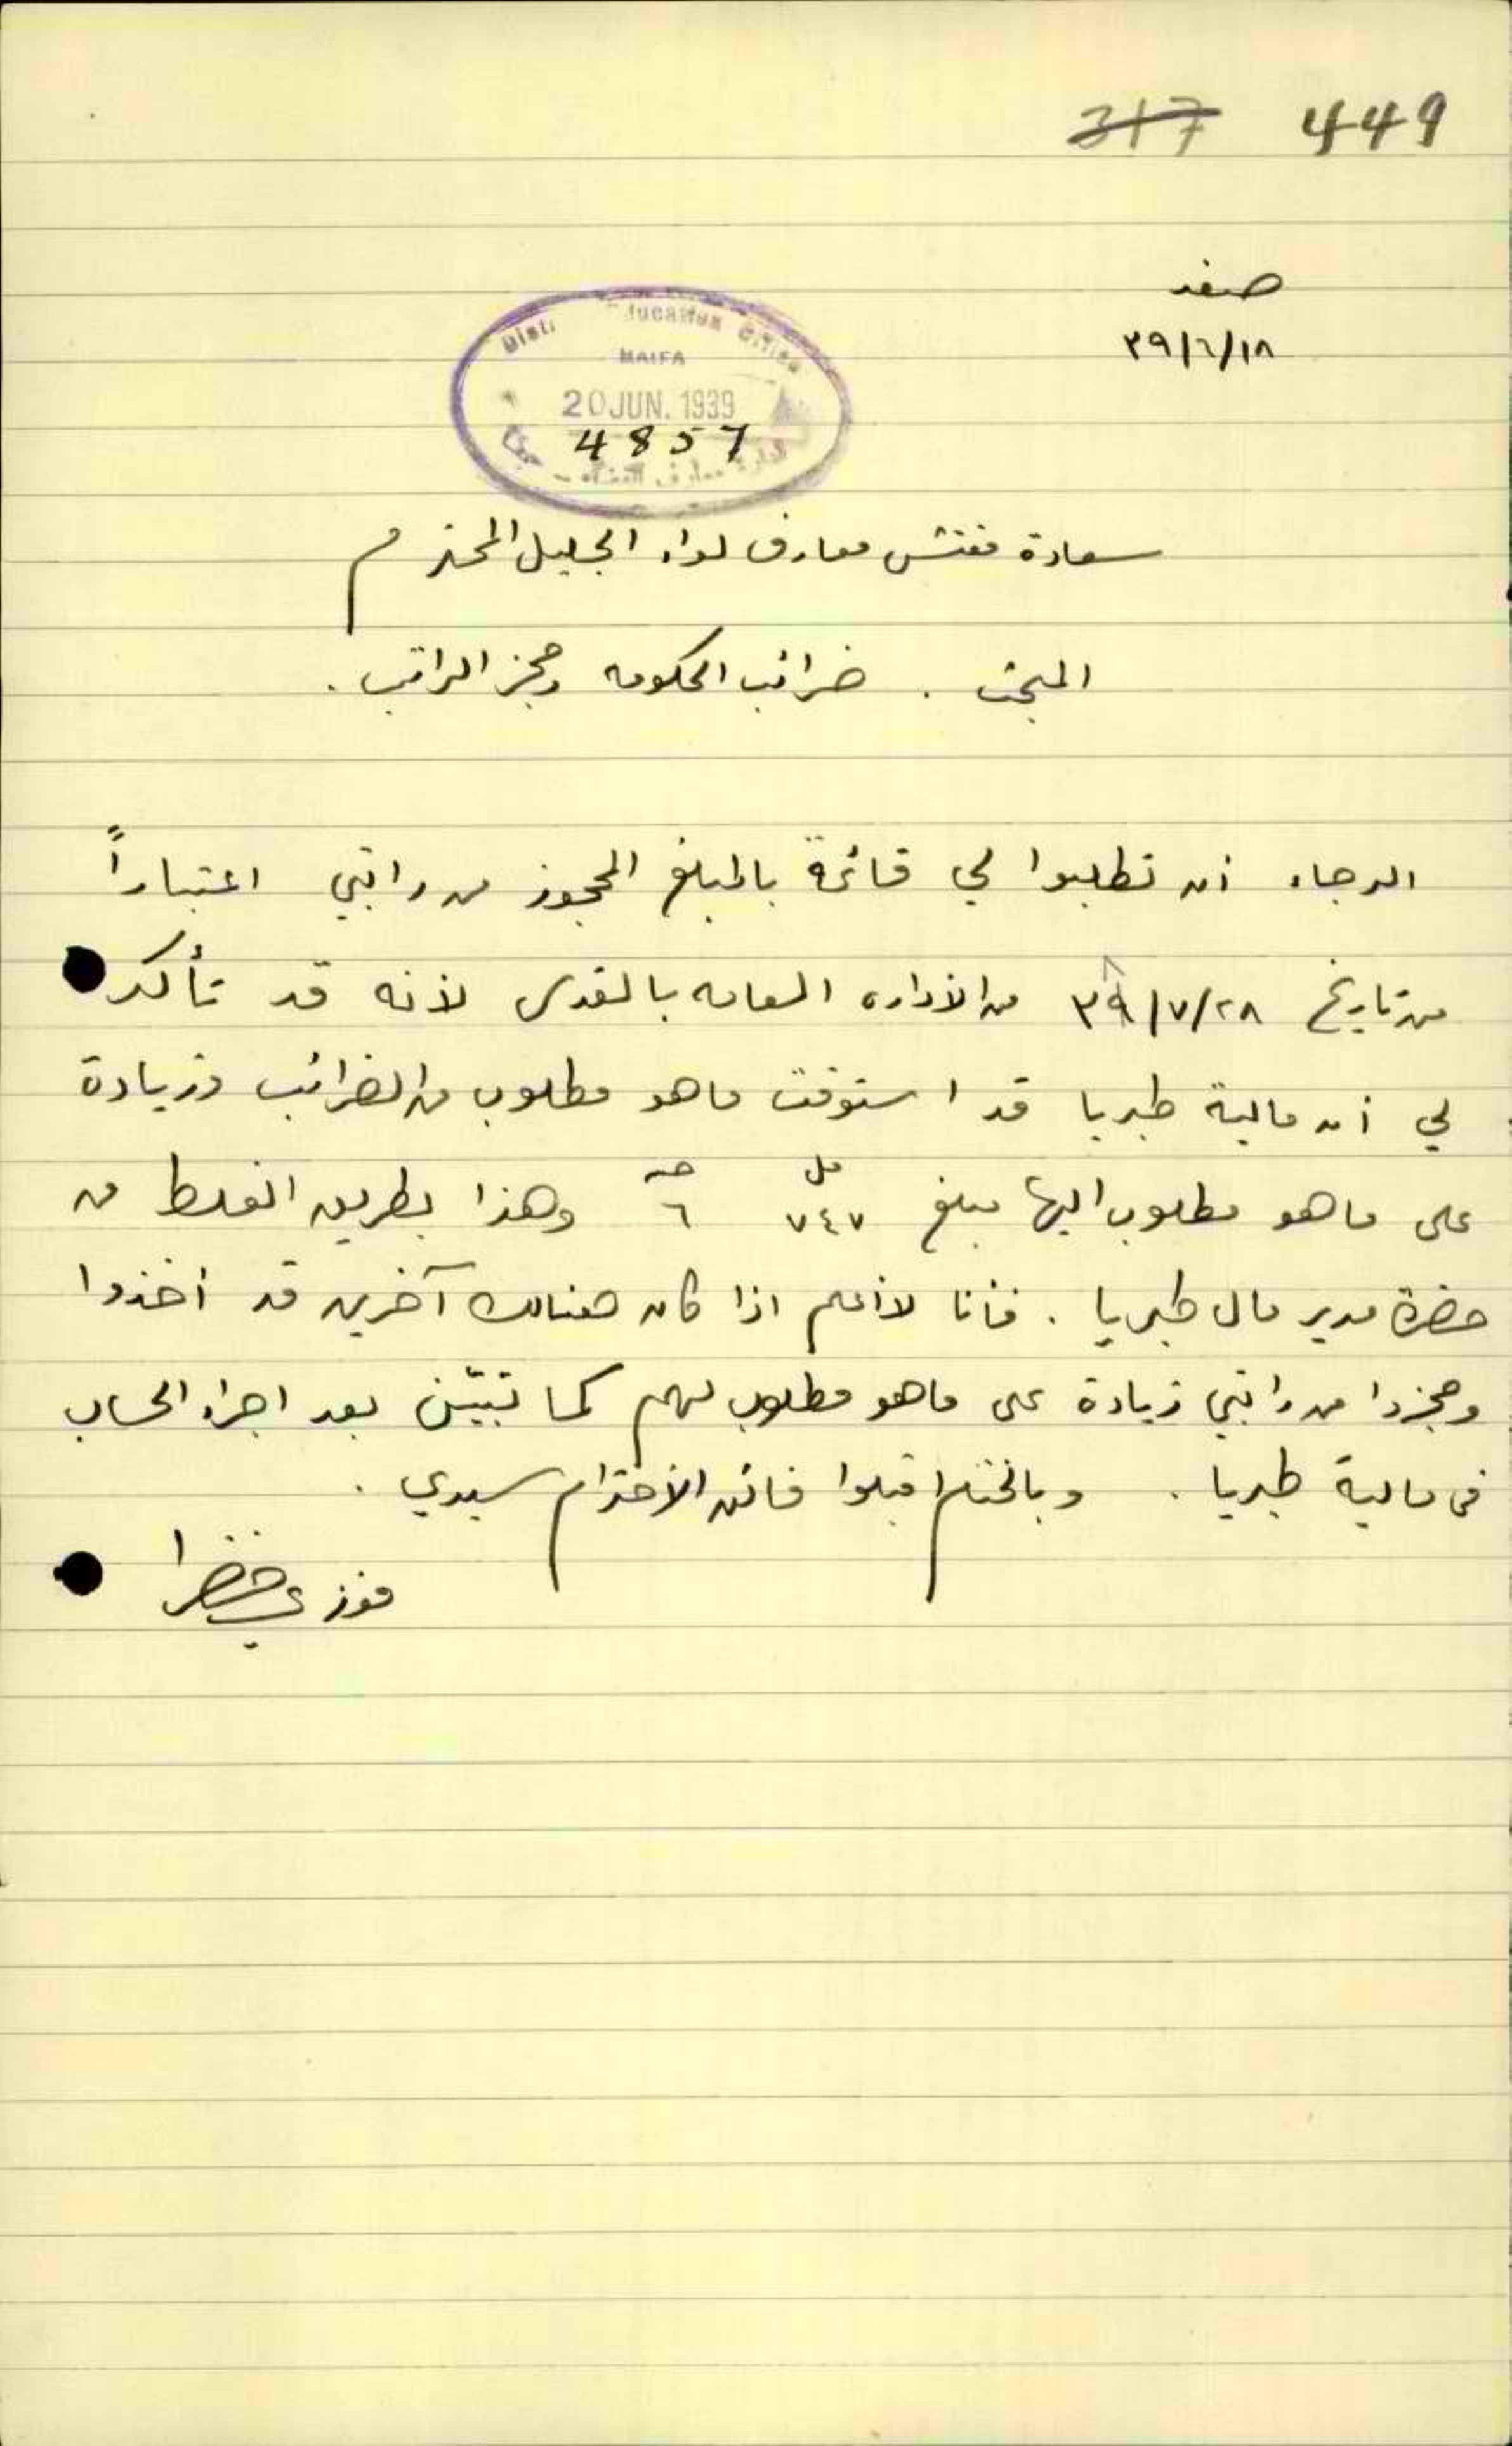 317 449
صفد
٣٩/٦/١٨
Education Office
HAIFA
20 JUN. 1939
4857
ادارة معارف القضاء
سعادة مفتش معارف لواء الجليل المحترم
المبحث . ضرائب الحكومه وحجز الراتب .
الرجاء أن تطلبوا لي قائمة بالمبلغ المحجوز من راتبي اعتباراً
من تاريخ ٢٨/٧/ من الأداره العامه بالقدس لأنه قد تأكد
لي أن مالية طبريا قد استوفت ما هو مطلوب من الضرائب وزيادة
على ما هو مطلوب اليها مبلغ ٧٤٧ مل ٦ جـ وهذا بطريق الغلط من
حضرة مدير مال طبريا . فأنا لا أعلم اذا كان هنالك آخرين قد أخذوا
وحجزوا من راتبي زيادة على ما هو مطلوب لهم كما تبيّن بعد اجراء الحساب
في مالية طبريا . وبالختام اقبلوا فائق الأحترام سيدي .
فوزي خضرا